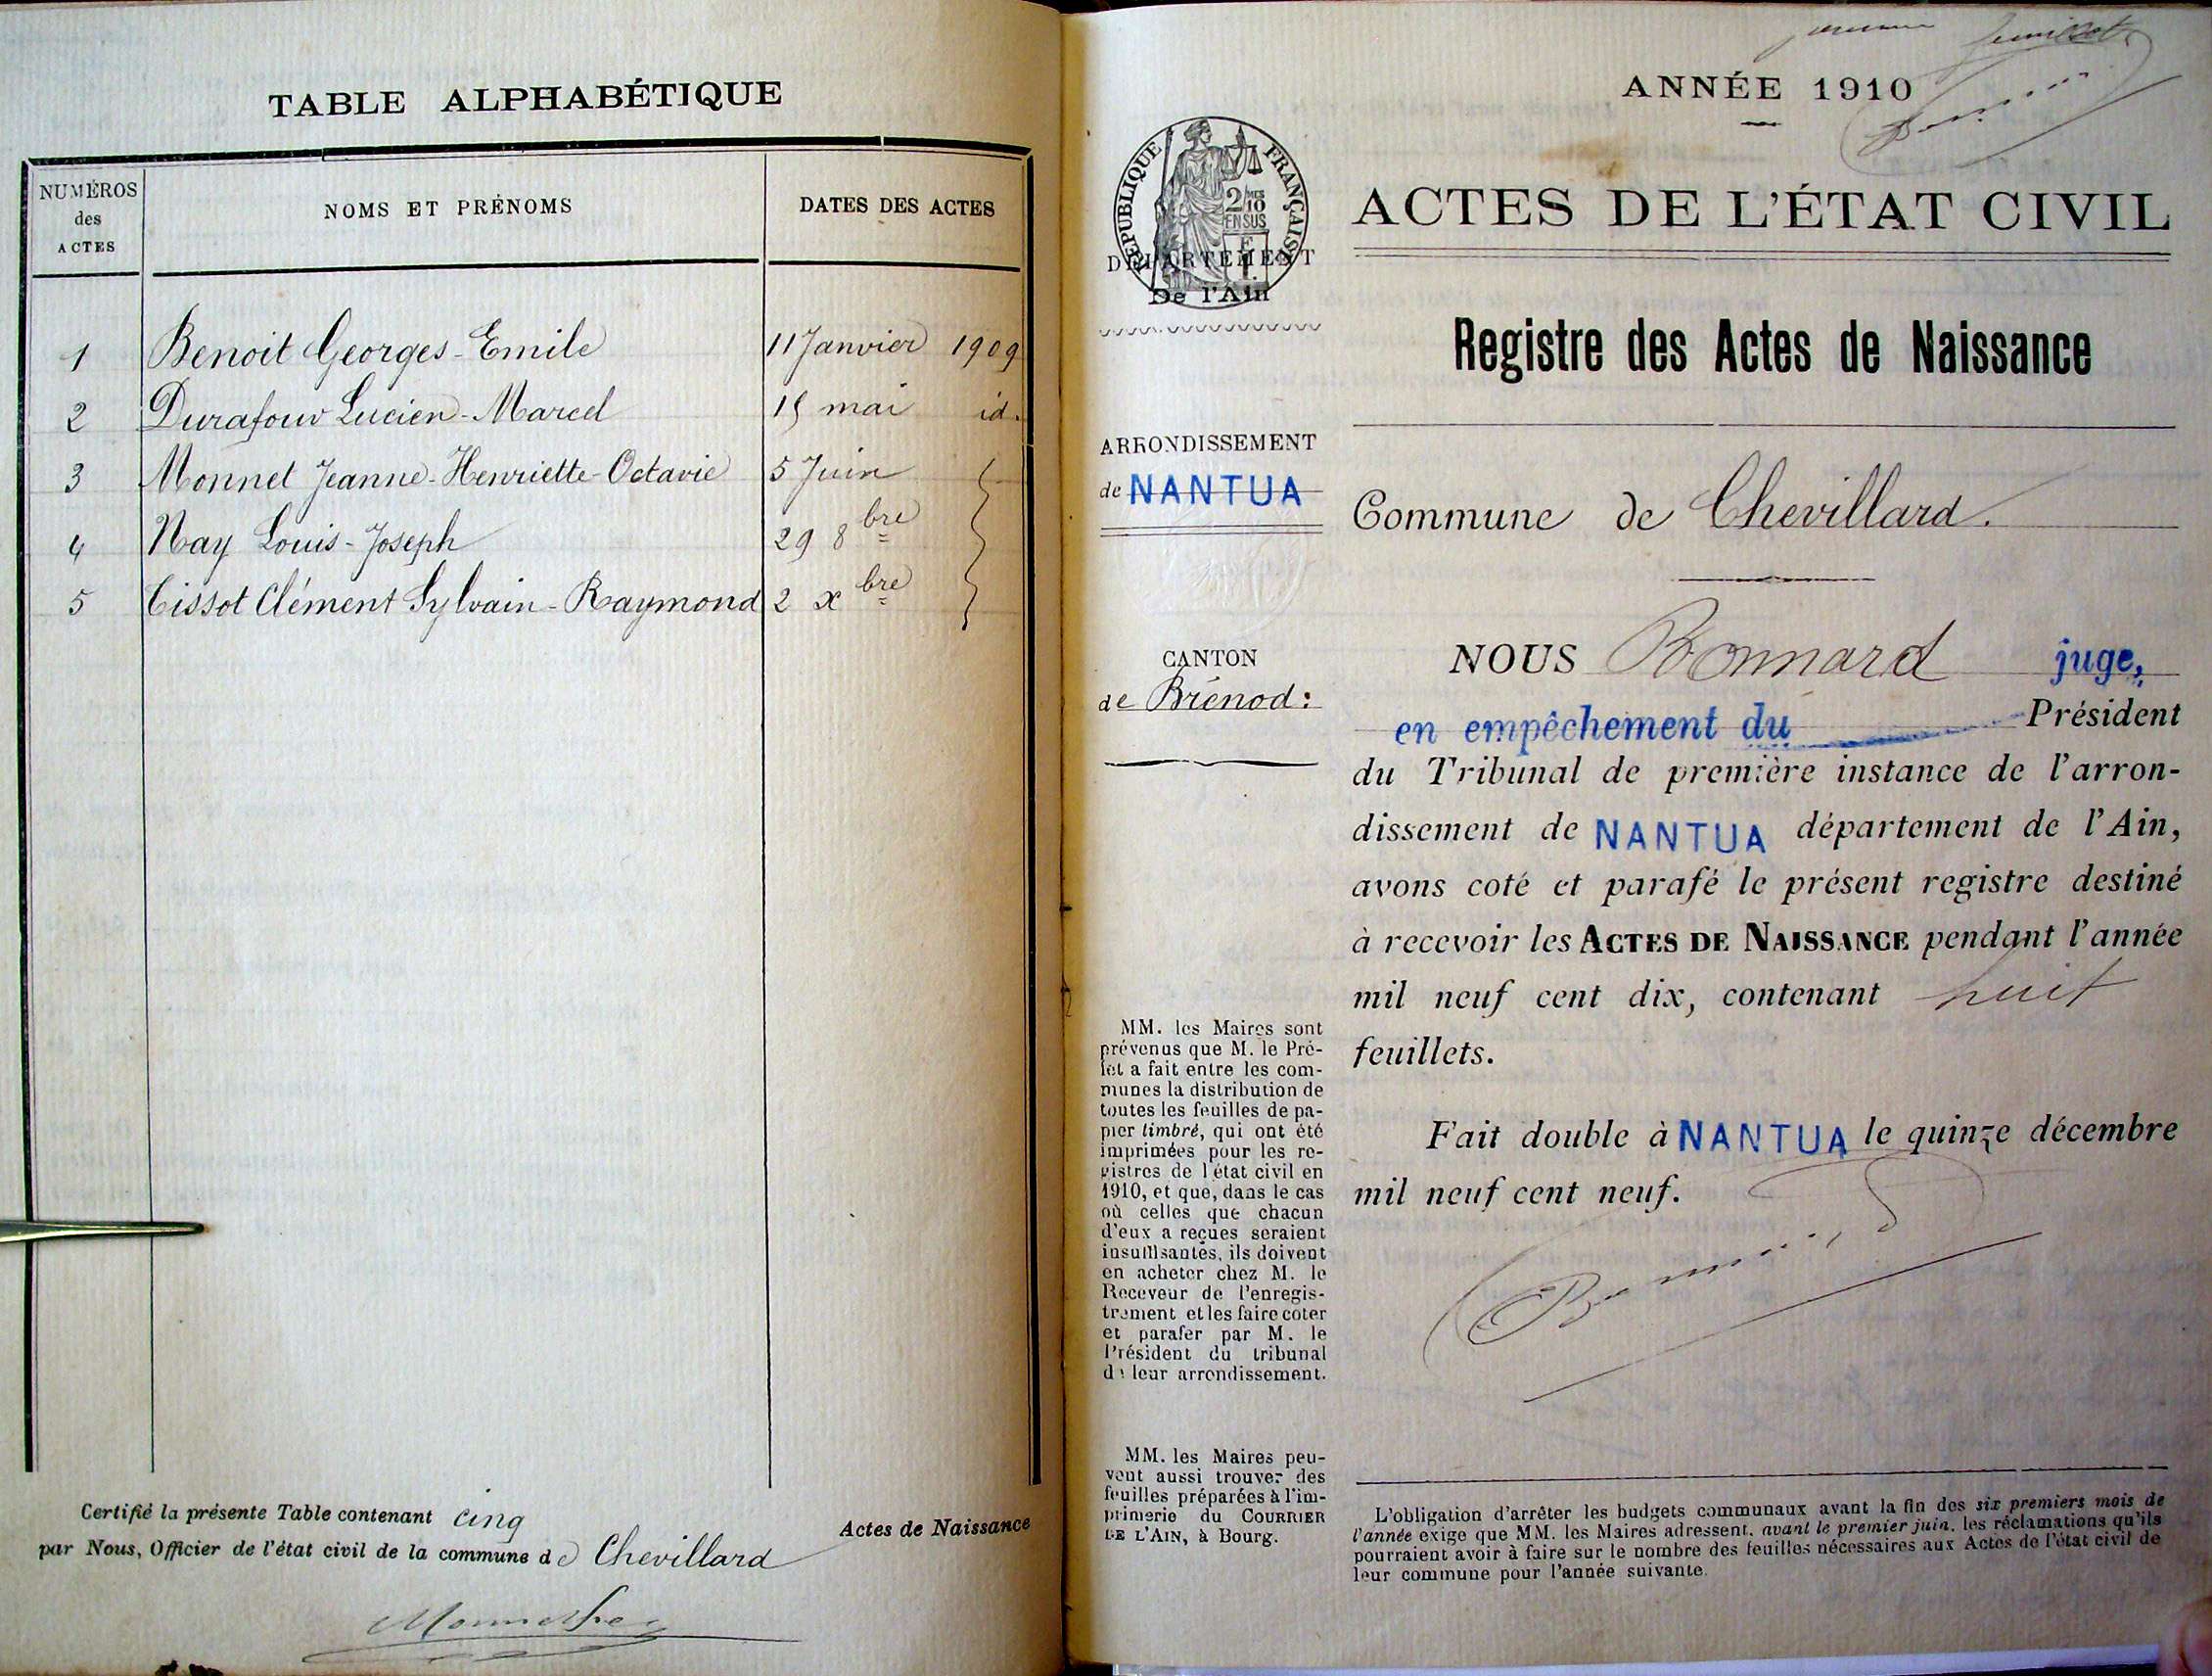 TABLE ALPHABÉTIQUE
NUMÉROS
des
ACTES
NOMS ET PRÉNOMS
DATES DES ACTES
1 Benoit Georges-Emile 11 Janvier 1909
2 Durafour Lucien-Marcel 15 mai id.
3 Monnet Jeanne-Henriette-Octavie 5 Juin
4 Nay Louis-Joseph 29 8bre
5 Tissot Clément Sylvain-Raymond 2 xbre
Certifié la présente Table contenant cinq
Actes de Naissance
par Nous, Officier de l'état civil de la commune de Chevillard
ANNÉE 1910
RÉPUBLIQUE FRANÇAISE
2/10
EN SUS
DÉPARTEMENT
De l'Ain
ACTES DE L'ÉTAT CIVIL
Registre des Actes de Naissance
ARRONDISSEMENT
de NANTUA
Commune de Chevillard.
CANTON
de Brénod:
NOUS Bonnard juge,
en empêchement du Président
du Tribunal de première instance de l'arron-
dissement de NANTUA département de l'Ain,
avons coté et parafé le présent registre destiné
à recevoir les ACTES DE NAISSANCE pendant l'année
mil neuf cent dix, contenant huit
feuillets.
Fait double à NANTUA le quinze décembre
mil neuf cent neuf.
MM. les Maires sont
prévenus que M. le Pré-
fet a fait entre les com-
munes la distribution de
toutes les feuilles de pa-
pier timbré, qui ont été
imprimées pour les re-
gistres de l'état civil en
1910, et que, dans le cas
où celles que chacun
d'eux a reçues seraient
insuffisantes, ils doivent
en acheter chez M. le
Receveur de l'enregis-
trement et les faire coter
et parafer par M. le
Président du tribunal
de leur arrondissement.
MM. les Maires peu-
vent aussi trouver des
feuilles préparées à l'im-
primerie du COURRIER
DE L'AIN, à Bourg.
L'obligation d'arrêter les budgets communaux avant la fin des six premiers mois de
l'année exige que MM. les Maires adressent, avant le premier juin, les réclamations qu'ils
pourraient avoir à faire sur le nombre des feuilles nécessaires aux Actes de l'état civil de
leur commune pour l'année suivante.